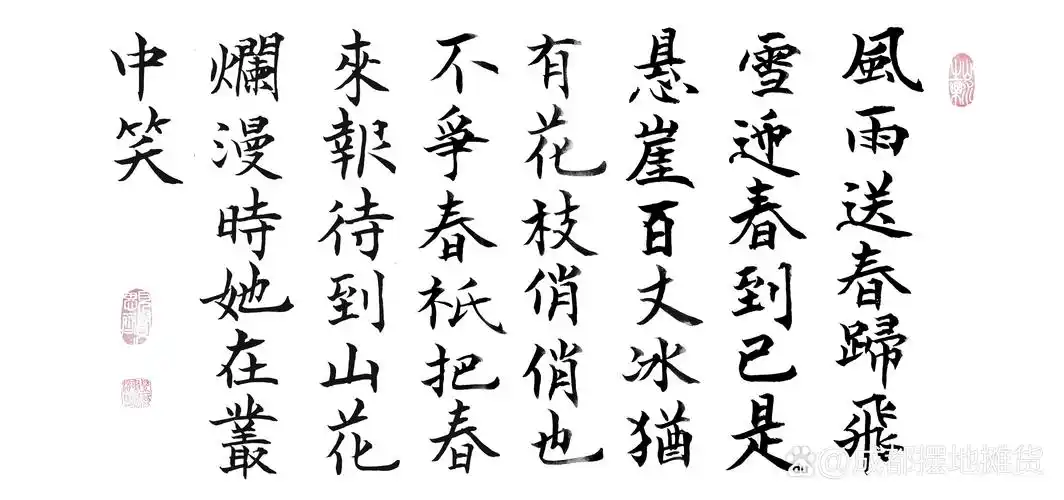 風雨送春歸飛
雪迎春到已是
悬崖百丈冰猶
有花枝俏俏也
不爭春衹把春
來報待到山花
爛漫時她在叢
中笑
@成都摆地摊货